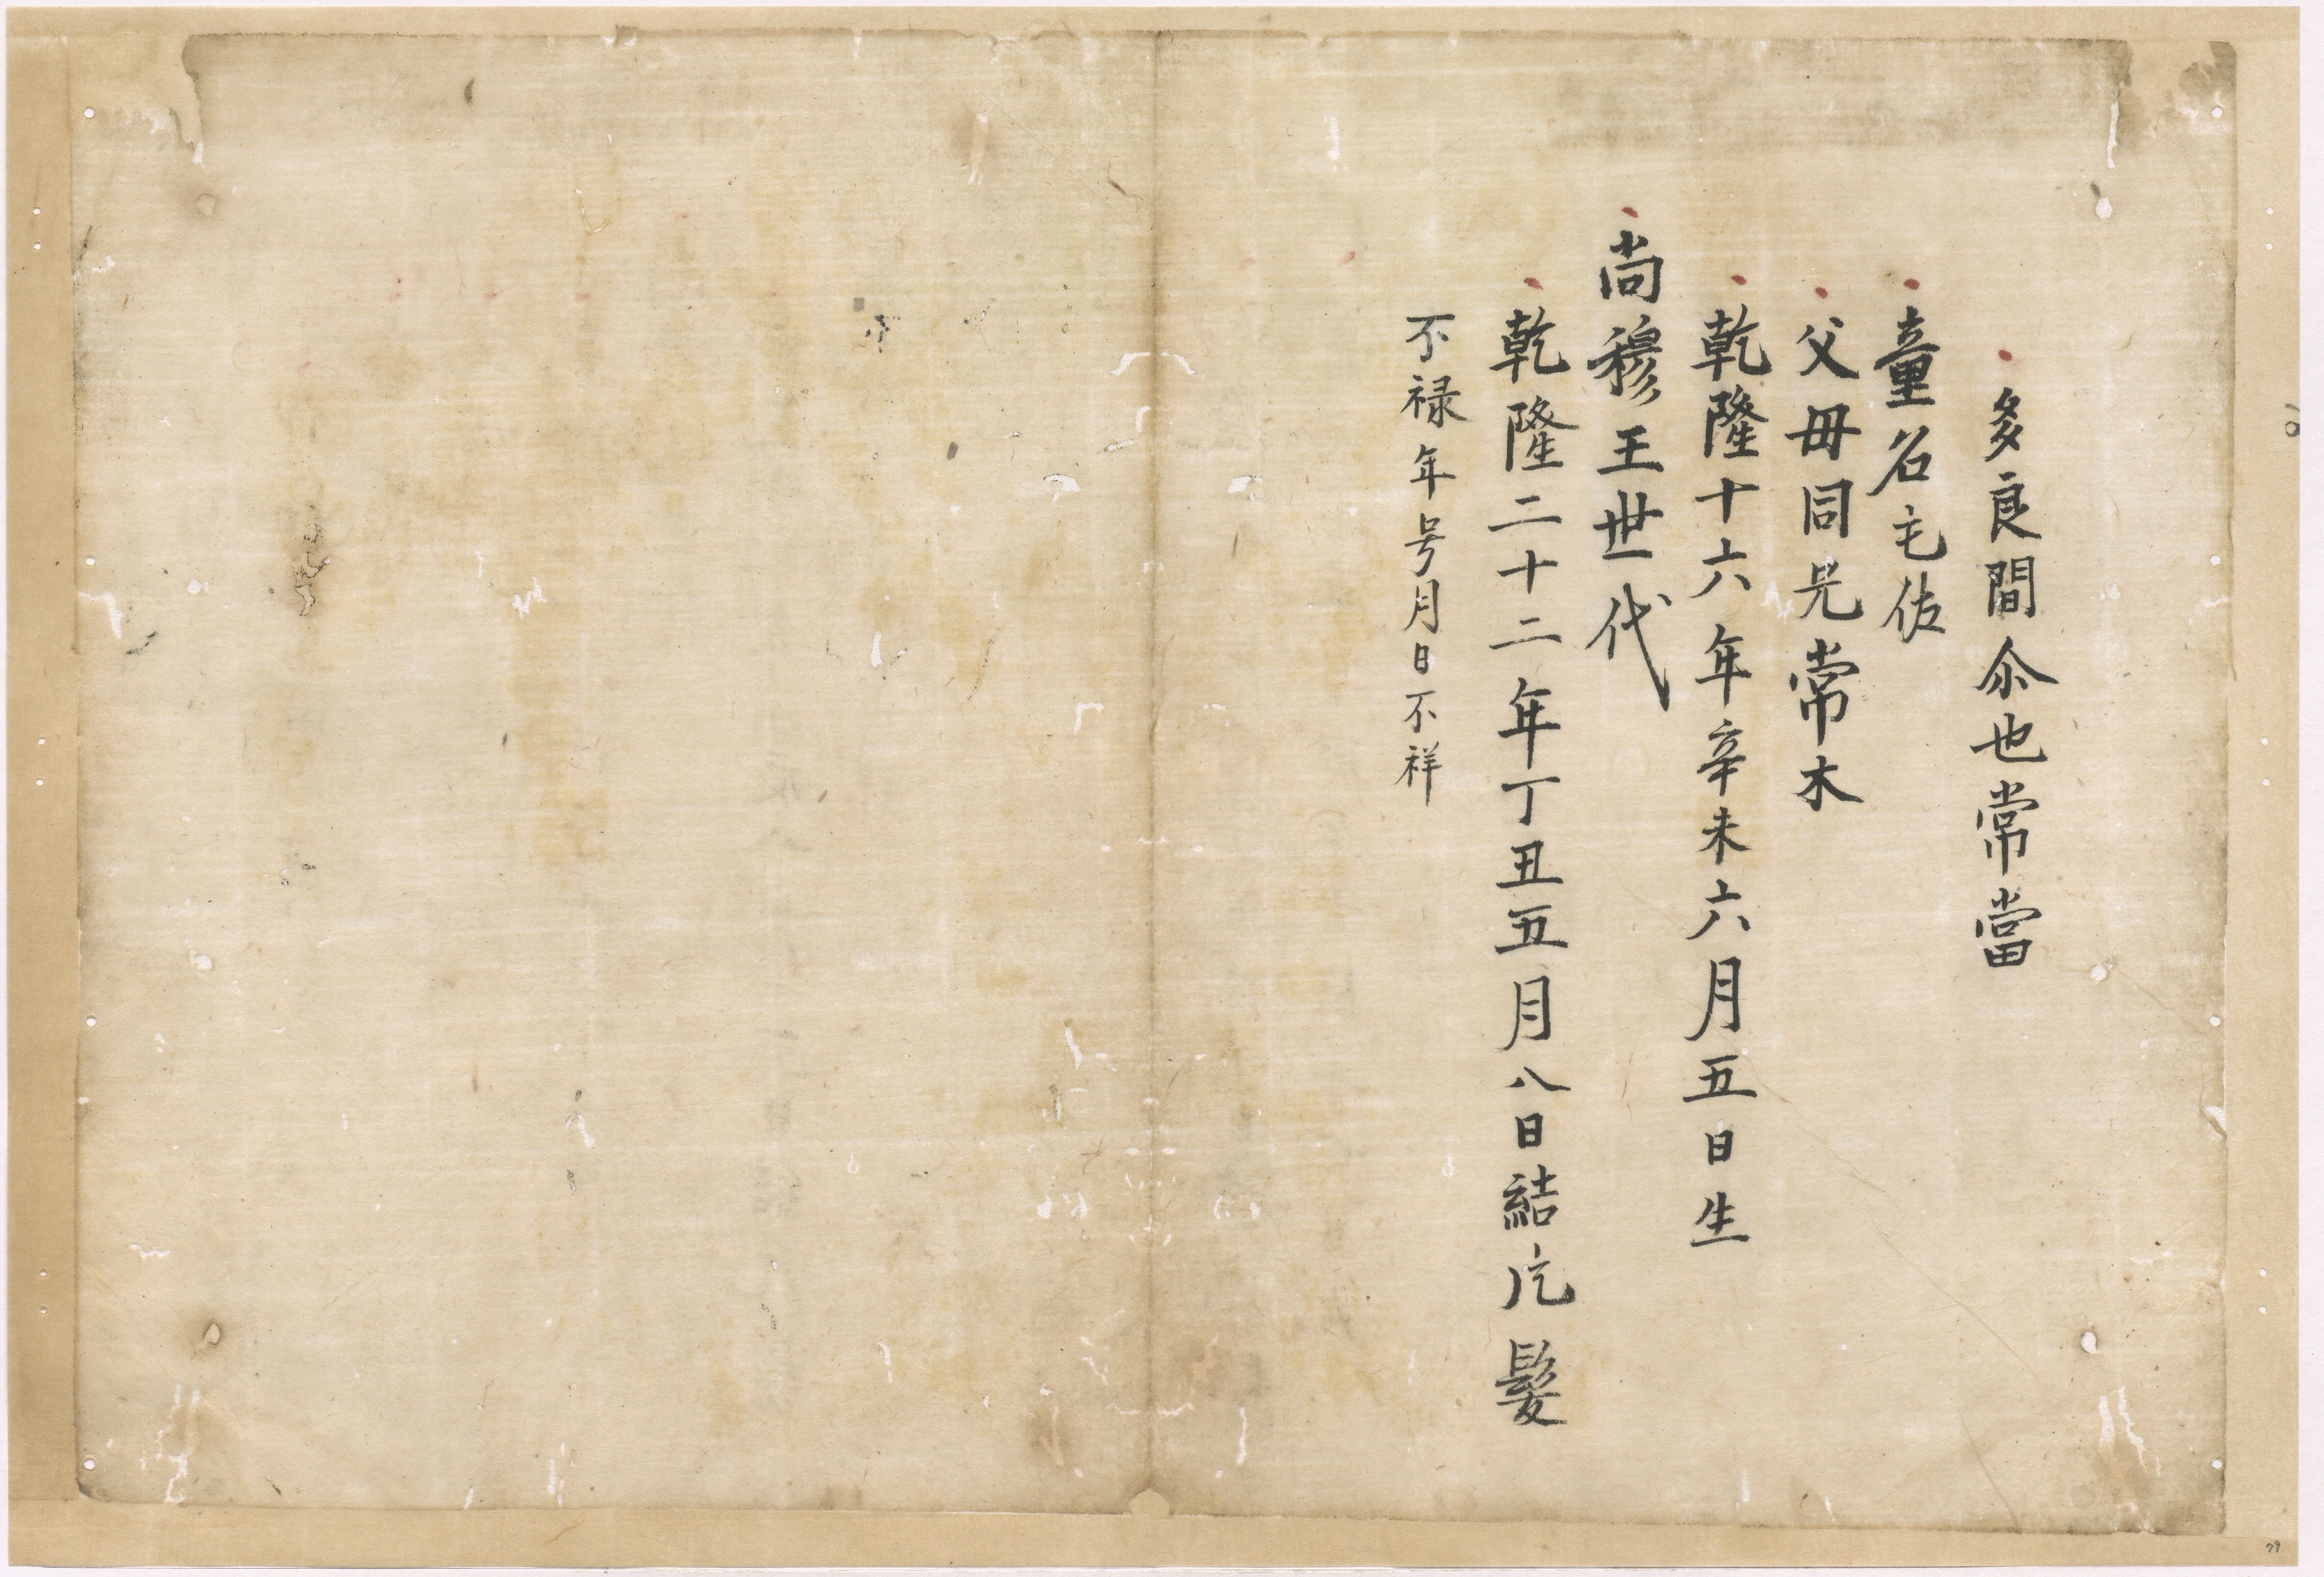 多良間尒也常當
童名毛佐
父母同兄常木
乾隆十六年辛未六月五日生
尚穆王世代
乾隆二十二年丁丑五月八日結片髮
不禄年号月日不祥